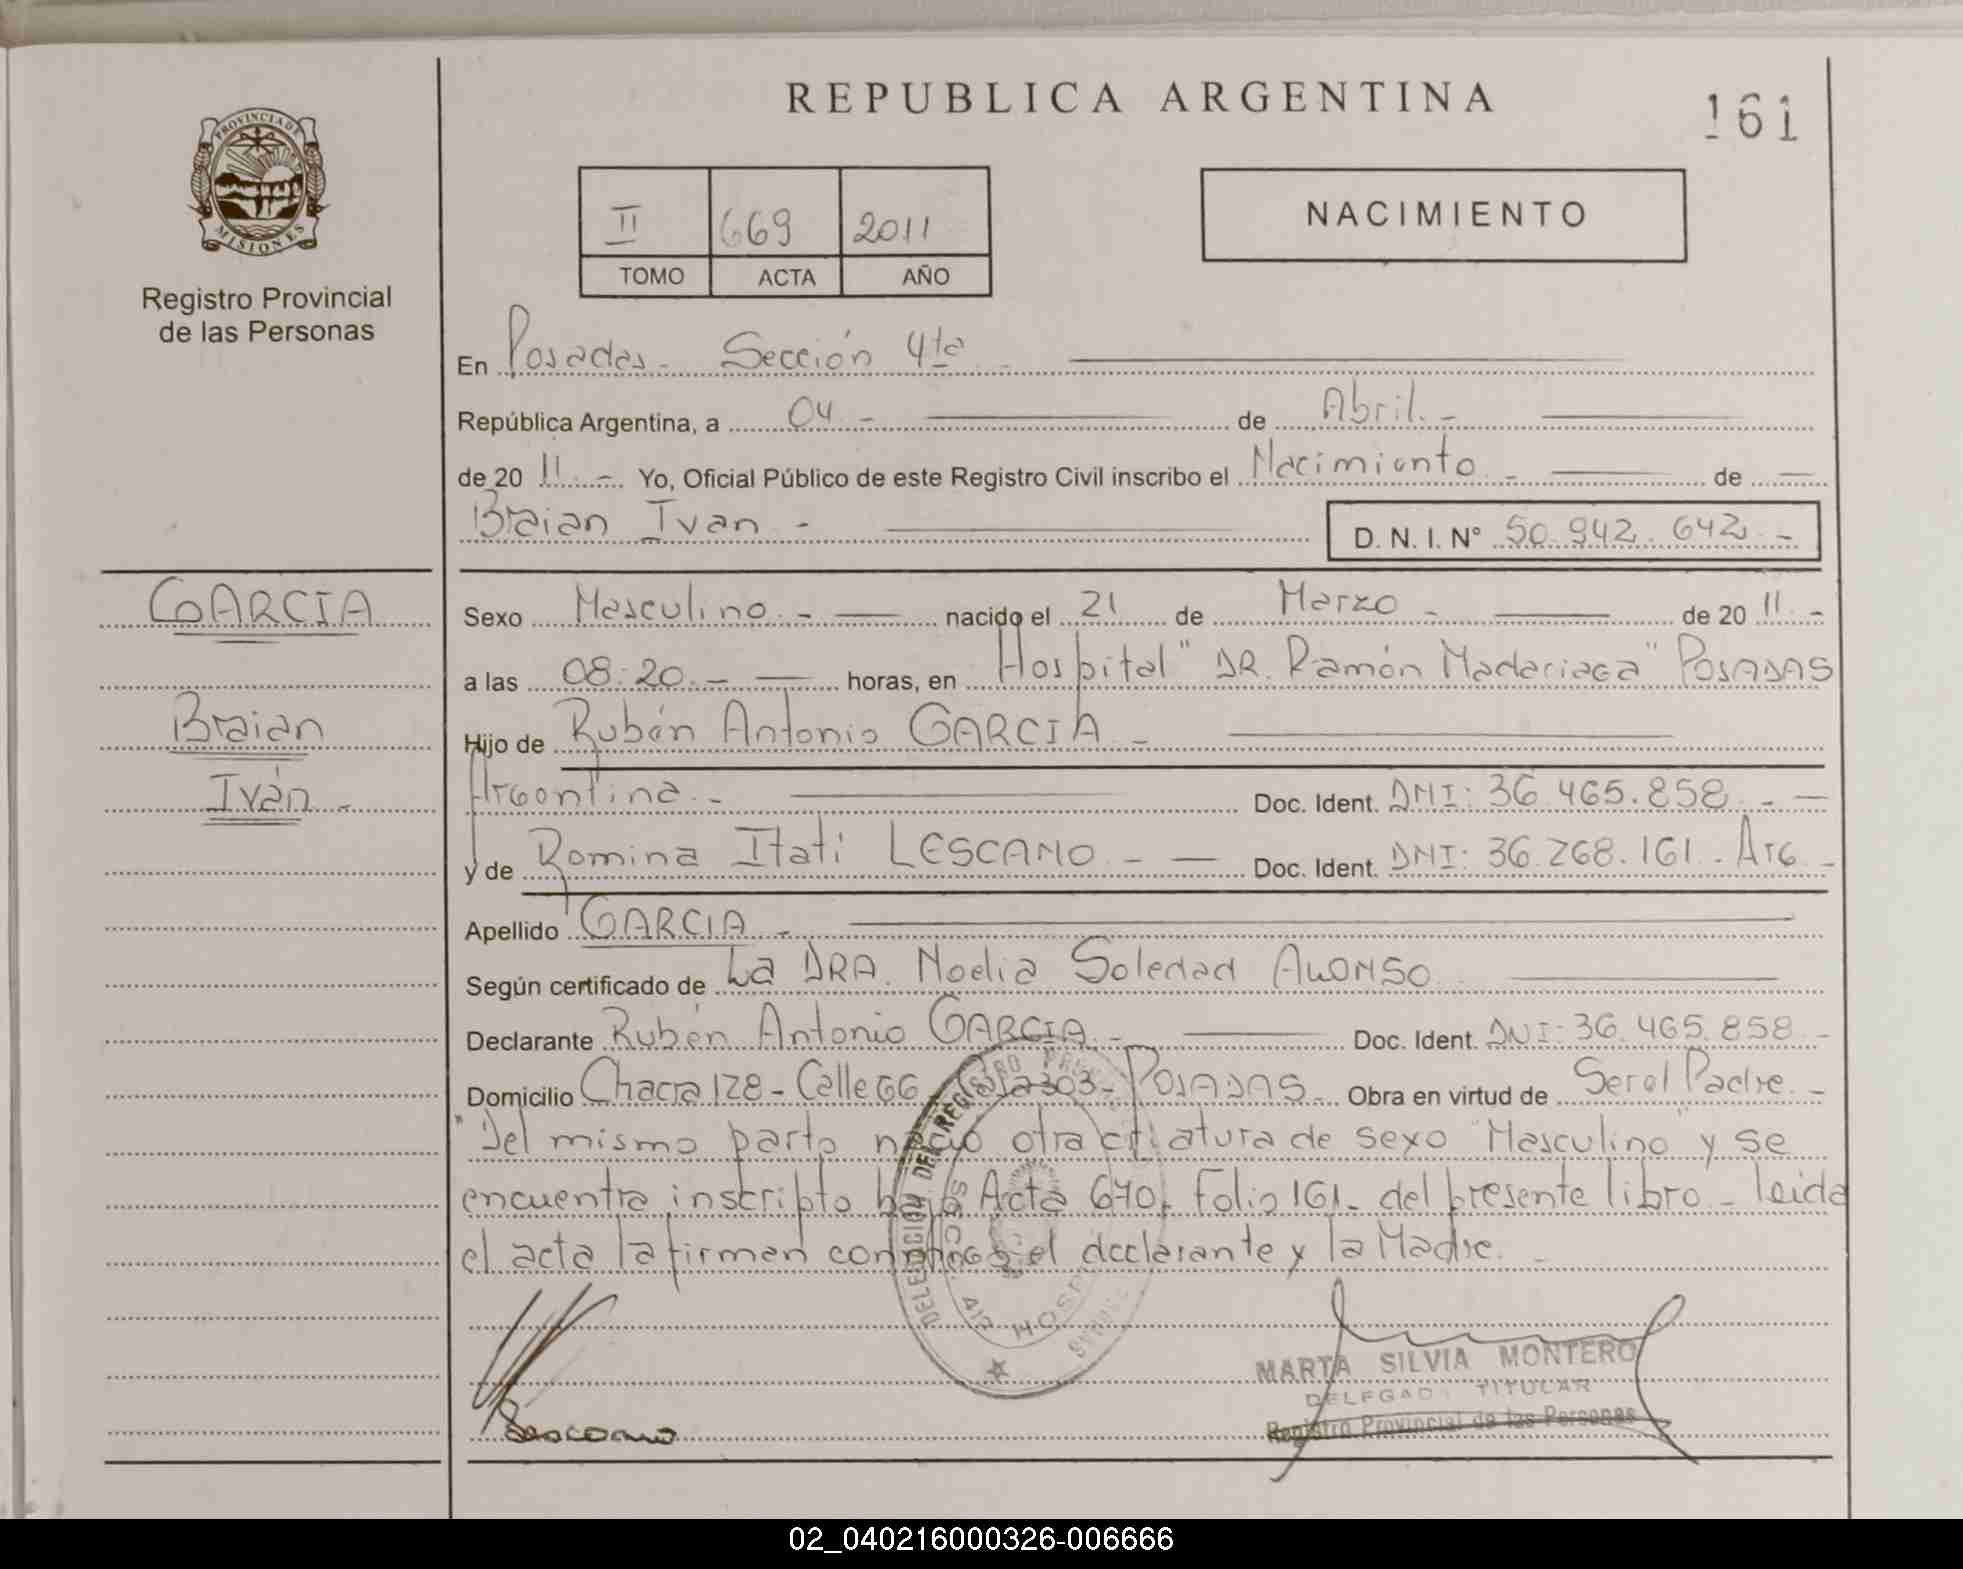 REPUBLICA ARGENTINA
161
PROVINCIA DE
MISIONES
Registro Provincial
de las Personas
II 669 2011
TOMO ACTA AÑO
NACIMIENTO
En Posadas - Sección 4ta
República Argentina, a 04 - de Abril. -
de 20 11 - Yo, Oficial Público de este Registro Civil inscribo el Nacimiento - de
Braian Ivan - D. N. I. Nº 50.942.642 -
GARCIA
Braian
Iván -
Sexo Masculino. - nacido el 21 de Marzo - de 20 11. -
a las 08:20 - horas, en Hospital "DR. Ramón Madariaga" POSADAS
Hijo de Rubén Antonio GARCIA -
Argentina. - Doc. Ident. DNI: 36.465.858 -
y de Romina Itati LESCANO - Doc. Ident. DNI: 36.268.161 - Arg -
Apellido GARCIA -
Según certificado de La DRA. Noelia Soledad ALONSO
Declarante Rubén Antonio GARCIA - Doc. Ident. DNI: 36.465.858 -
Domicilio Chacra 128 - Calle 66 Casa 303 - POSADAS. Obra en virtud de Ser el Padre. -
"Del mismo parto nació otra criatura de sexo "Masculino" y se
encuentra inscripto bajo Acta 670, Folio 161 - del presente libro - leida
el acta la firman conmigo el declarante y la Madre. -
DELEGACION DEL REGISTRO
SECC. 4ta HOSP
Lescano
MARTA SILVIA MONTERO
DELEGADA TITULAR
Registro Provincial de las Personas
02_040216000326-006666